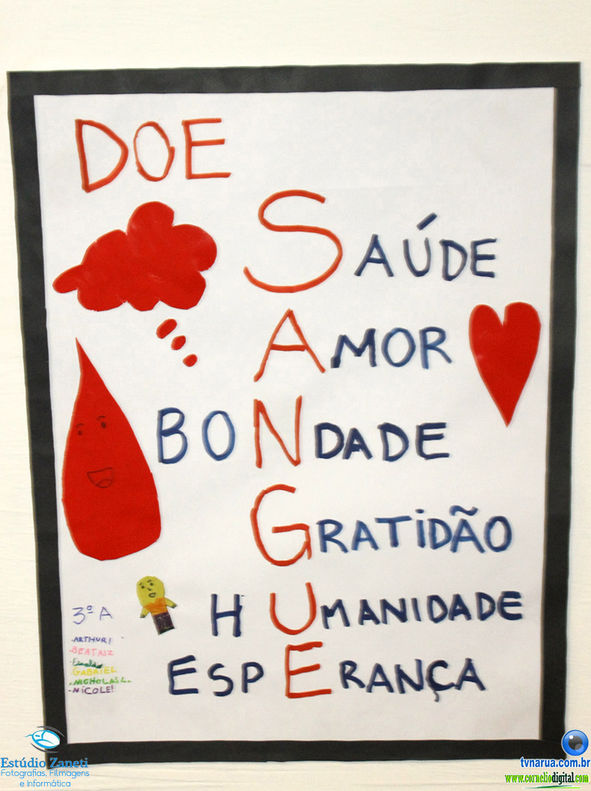 DOE
SAÚDE
AMOR
BONDADE
GRATIDÃO
HUMANIDADE
ESPERANÇA
3º A
-ARTHUR!
-BEATRIZ
-GABRIEL
-NICHOLAS L.
-NICOLE!
Estúdio Zaneti
Fotografias, Filmagens
e Informática
tvnarua.com.br
www.corneliodigital.com